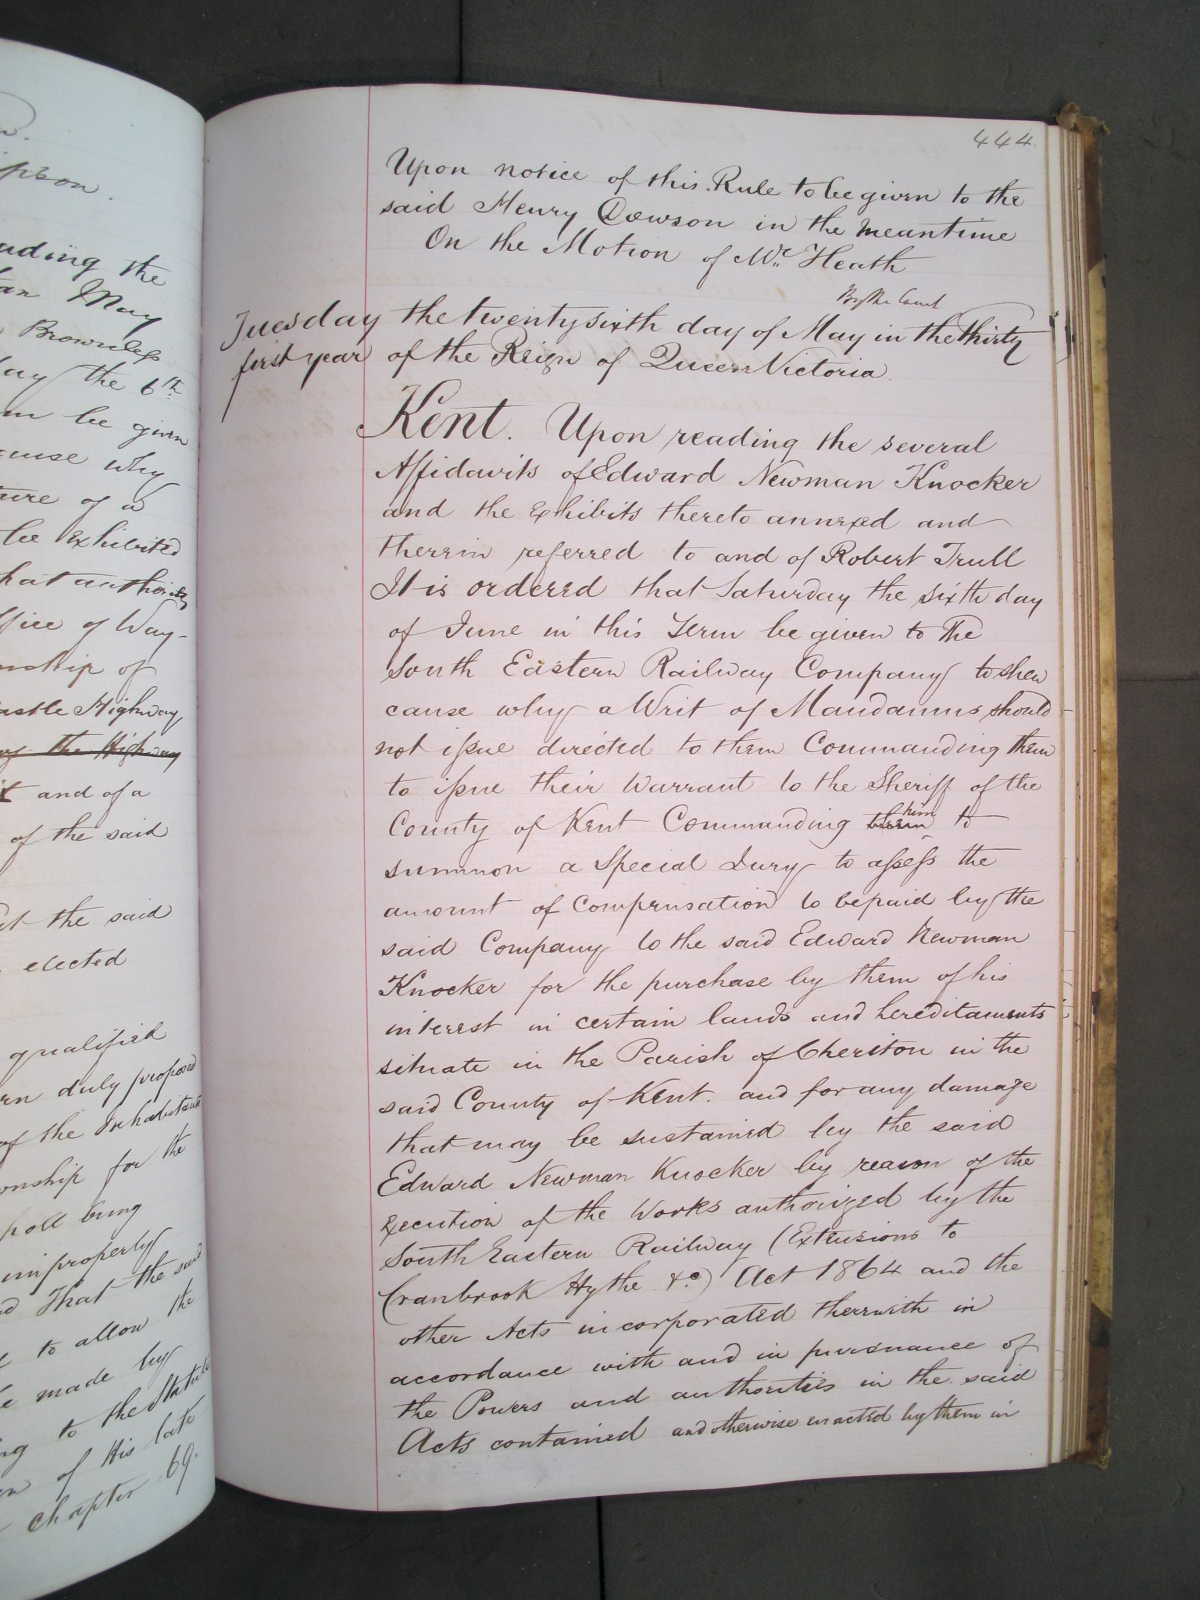 444
Upon notice of this Rule to be given to the
said Henry Dowson in the meantime
On the Motion of Mr. Heath
By the Court
Tuesday the twenty sixth day of May in the thirty
first year of the Reign of Queen Victoria.
Kent. Upon reading the several
Affidavits of Edward Newman Knocker
and the Exhibits thereto annexed and
therein referred to and of Robert Trull
It is ordered that Saturday the sixth day
of June in this Term be given to The
South Eastern Railway Company to shew
cause why a Writ of Mandamus should
not issue directed to them Commanding them
to issue their Warrant to the Sheriff of the
County of Kent Commanding him to
summon a Special Jury to assess the
amount of Compensation to be paid by the
said Company to the said Edward Newman
Knocker for the purchase by them of his
interest in certain lands and hereditaments
situate in the Parish of Cheriton in the
said County of Kent. and for any damage
that may be sustained by the said
Edward Newman Knocker by reason of the
execution of the Works authorized by the
South Eastern Railway (Extensions to
Cranbrook Hythe &c) Act 1864 and the
other Acts incorporated therewith in
accordance with and in pursuance of
the Powers and authorities in the said
Acts contained and otherwise enacted by them in
ading the
May
Brownless
the 6th
be given
cause why
ture of a
be Exhibited
that authority
ffice of Way-
nship of
astle Highway
the Highway
and of a
of the said
the said
elected
qualified
duly proposed
of the Inhabitants
ownship for the
poll being
improperly
That the said
to allow the
made by
to the Statute
of His late
chapter 69.